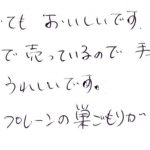 ても おいしいです
で売っているので 手
うれしいです。
プレーンの巣ごもりが